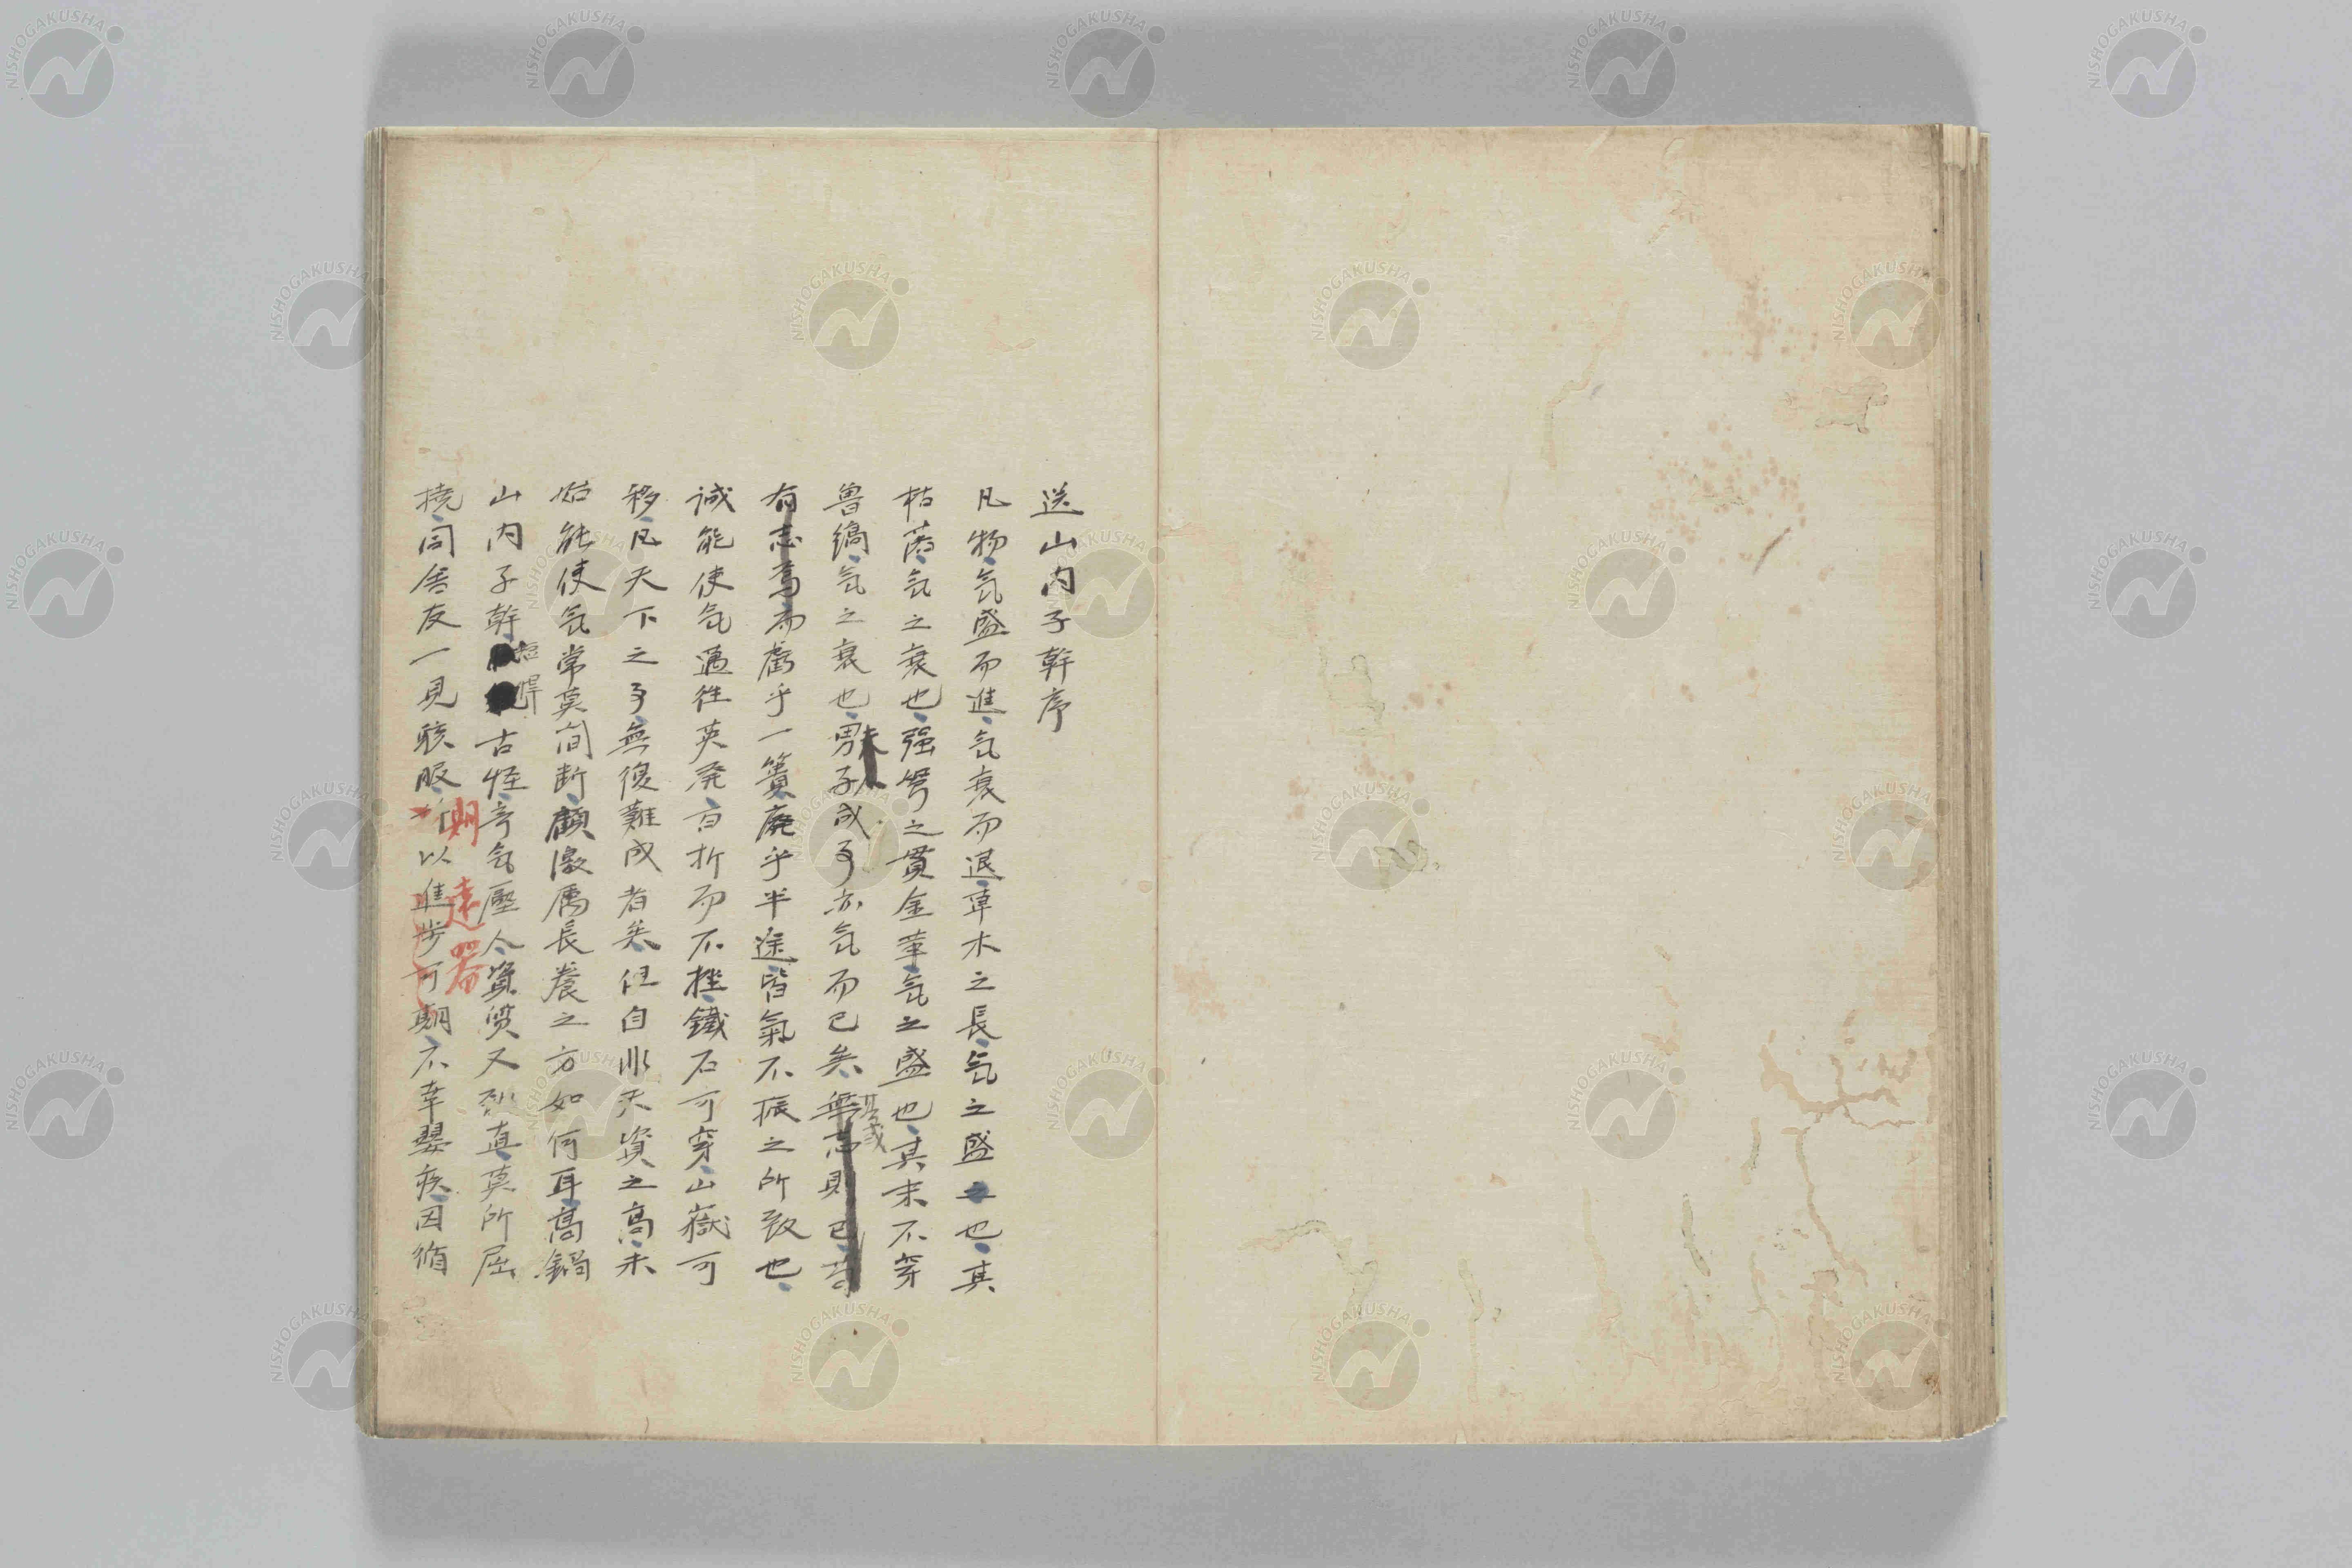 送山内子幹序
凡物気盛而進気衰而退草木之長気之盛也其
枯落気之衰也強弩之貫金革気之盛也其末不穿
魯縞気之衰也男子成事亦気而已矣無志則已苟
有志焉而虧乎一簣廃乎半途皆氣不振之所致也
誠能使気邁往英発百折而不挫鐵石可穿山嶽可
移凡天下之事無復難成者矣但自非天資之高未
始能使気常莫間断顧激厲長養之方如何耳高鍋
山内子幹短悍古怪奇気壓人資質又剛直莫所屈
撓同舎友一見駭服所以進歩可期不幸嬰疾因循
期 遠器
NISHOGAKUSHA